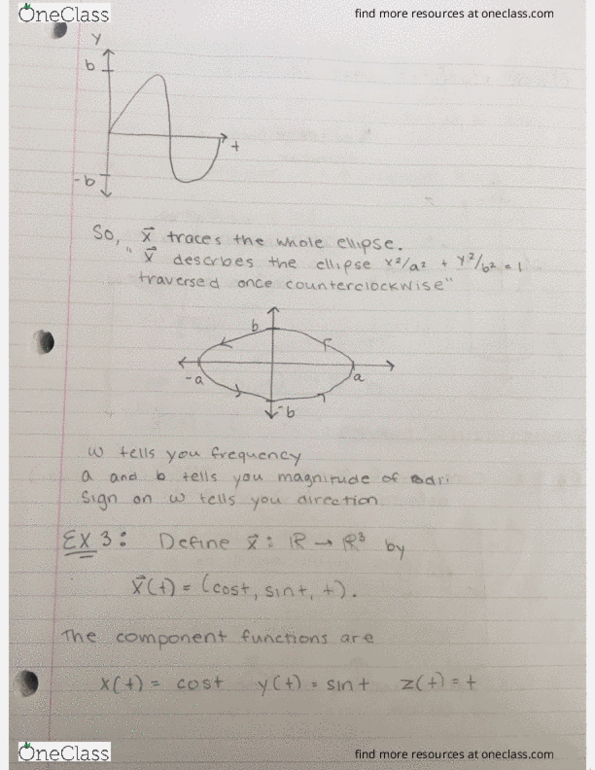 OneClass
find more resources at oneclass.com
y
b
t
-b
So, x⃗ traces the whole ellipse.
"x⃗ describes the ellipse x²/a² + y²/b² = 1
traversed once counterclockwise"
b
-a
a
-b
w tells you frequency
a and b tells you magnitude of radii
Sign on w tells you direction
EX 3: Define x⃗: ℝ → ℝ³ by
x⃗(t) = (cost, sint, t).
The component functions are
x(t) = cost y(t) = sint z(t) = t
OneClass
find more resources at oneclass.com